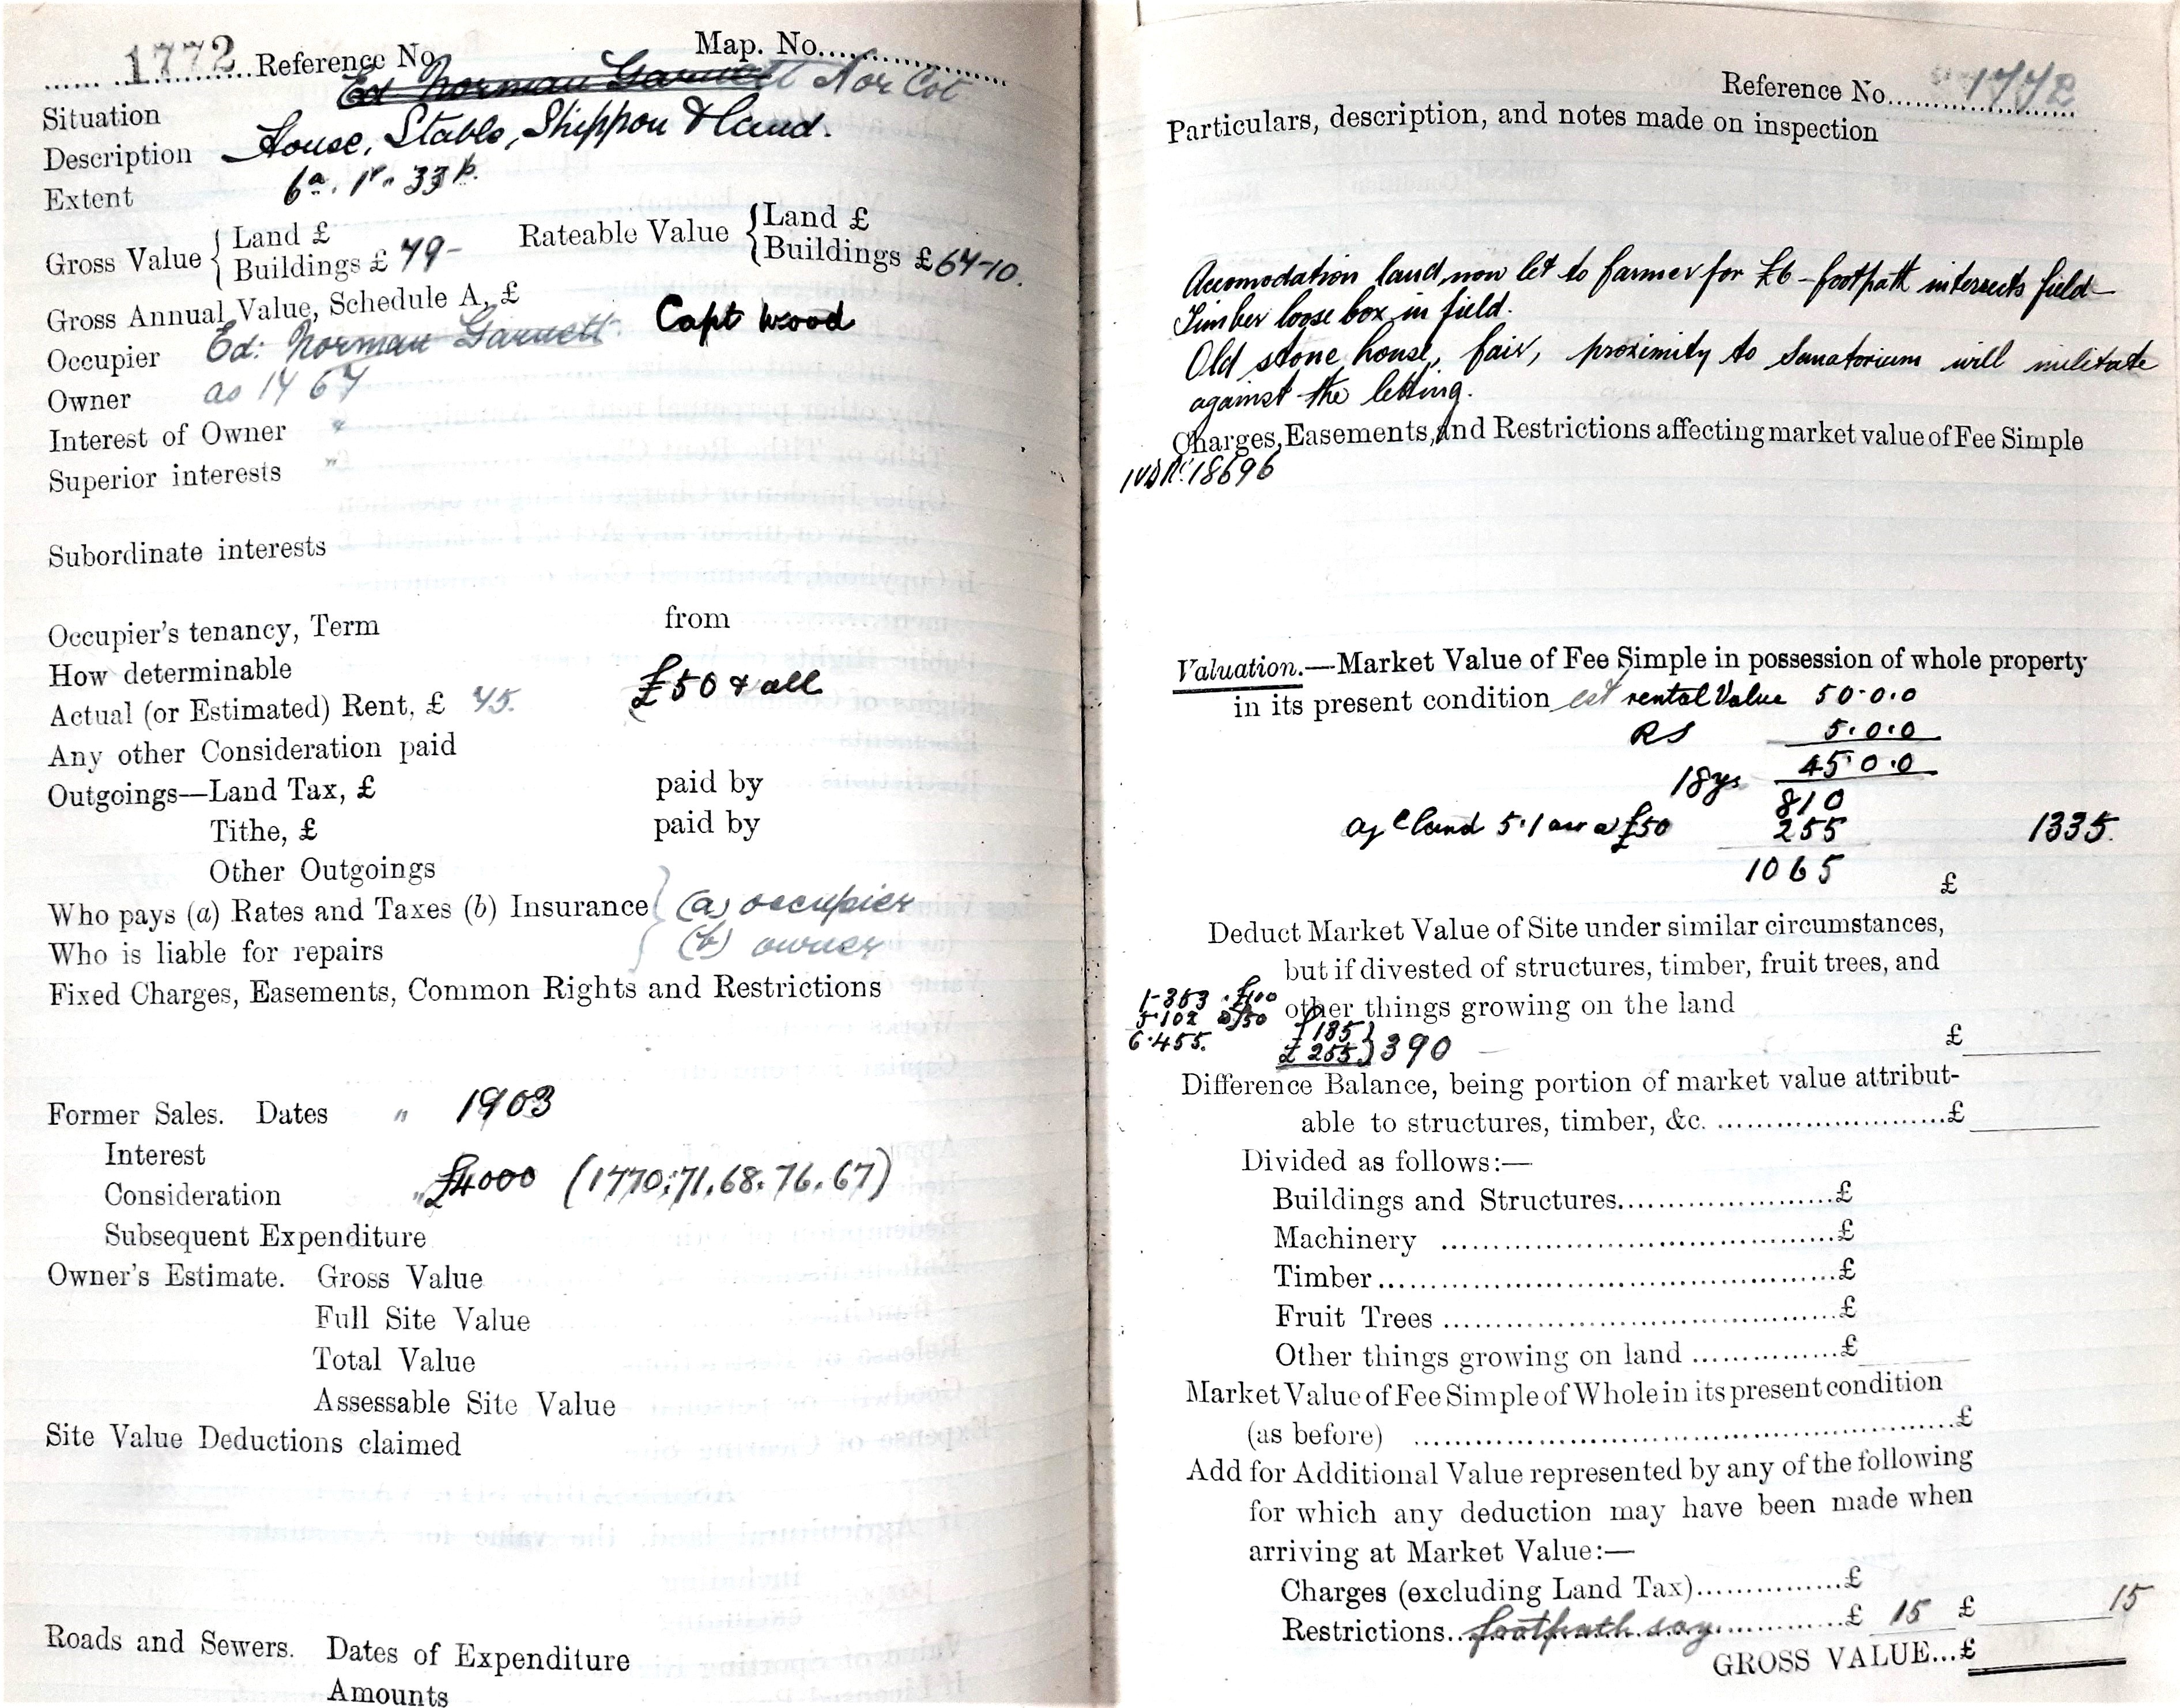 1772 Reference No. Map. No.
Situation Ed Norman Garnett Nor Cot
Description House, Stable, Shippon & land.
Extent 6a. 1r. 33p.
Gross Value { Land £ Rateable Value { Land £
Buildings £ 79- Buildings £64-10.
Gross Annual Value, Schedule A, £
Occupier Ed: Norman Garnett. Capt Wood
Owner as 1767
Interest of Owner "
Superior interests "
Subordinate interests
Occupier's tenancy, Term from
How determinable
Actual (or Estimated) Rent, £ 45. £50 & all
Any other Consideration paid
Outgoings—Land Tax, £ paid by
Tithe, £ paid by
Other Outgoings
Who pays (a) Rates and Taxes (b) Insurance } (a) occupier
Who is liable for repairs (b) owner
Fixed Charges, Easements, Common Rights and Restrictions
Former Sales. Dates " 1903
Interest
Consideration " £4000 (1770,71,68,76,67)
Subsequent Expenditure
Owner's Estimate. Gross Value
Full Site Value
Total Value
Assessable Site Value
Site Value Deductions claimed
Roads and Sewers. Dates of Expenditure
Amounts
Reference No. 1772
Particulars, description, and notes made on inspection
Accomodation land now let to farmer for £6 - footpath intersects field—
Timber loose box in field.
Old stone house, fair, proximity to Sanatorium will militate
against the letting.
Charges, Easements, and Restrictions affecting market value of Fee Simple
18696
Valuation.—Market Value of Fee Simple in possession of whole property
in its present condition est rental Value 50.0.0
RS 5.0.0
45 0.0
18 yrs 810
agcl land 5.1 a £50 255 1335.
1065
£
Deduct Market Value of Site under similar circumstances,
but if divested of structures, timber, fruit trees, and
1-353 . £100 other things growing on the land
5.102 @ £50
6.455. £135 } 390 — £
£255
Difference Balance, being portion of market value attribut-
able to structures, timber, &c. £
Divided as follows:—
Buildings and Structures £
Machinery £
Timber £
Fruit Trees £
Other things growing on land £
Market Value of Fee Simple of Whole in its present condition
(as before) £
Add for Additional Value represented by any of the following
for which any deduction may have been made when
arriving at Market Value:—
Charges (excluding Land Tax) £
Restrictions footpath say £ 15 £ 15
GROSS VALUE...£